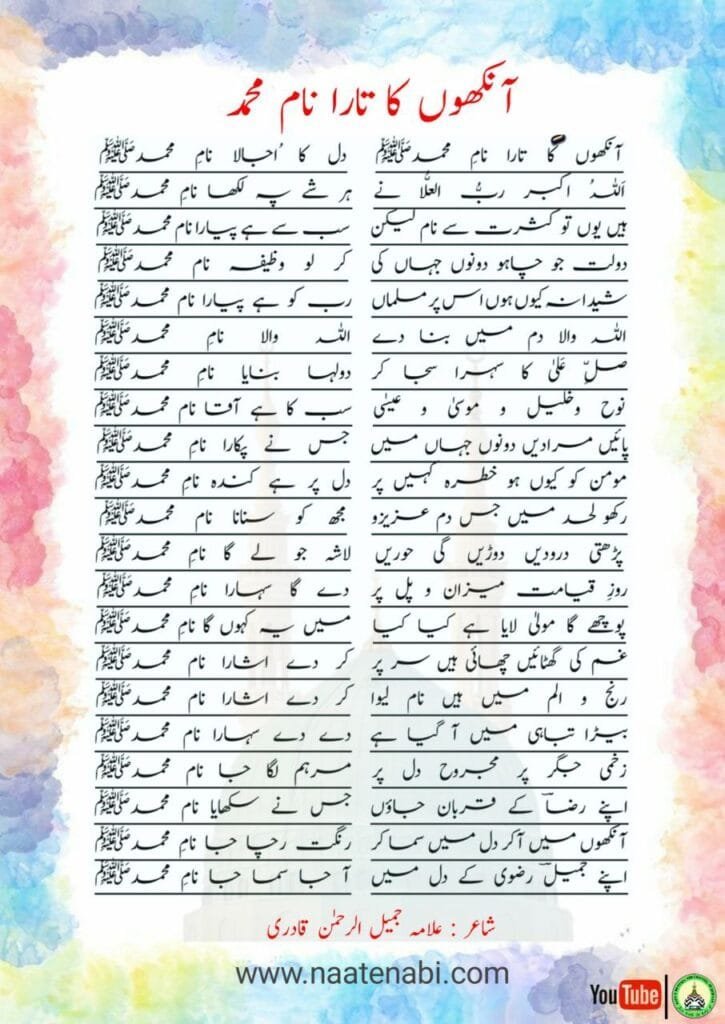 آنکھوں کا تارا نام محمد
آنکھوں کا تارا نامِ محمدﷺ دل کا اُجالا نامِ محمدﷺ
اَللہُ اکبر ربُّ العلٰا نے ہر شے پہ لکھا نامِ محمدﷺ
ہیں یوں تو کثرت سے نام لیکن سب سے ہے پیارا نام محمدﷺ
دولت جو چاہو دونوں جہاں کی کر لو وظیفہ نام محمدﷺ
شیدا نہ کیوں ہوں اس پر مسلماں رب کو ہے پیارا نام محمدﷺ
اللہ والا دم میں بنا دے اللہ والا نامِ محمدﷺ
صلِّ عَلٰی کا سہرا سجا کر دولہا بنایا نامِ محمدﷺ
نوح و خلیل و موسیٰ و عیسیٰ سب کا ہے آقا نام محمدﷺ
پائیں مرادیں دونوں جہاں میں جس نے پکارا نامِ محمدﷺ
مومن کو کیوں ہو خطرہ کہیں پر دل پر ہے کندہ نام محمدﷺ
رکھو لحد میں جس دم عزیزو مجھ کو سنانا نام محمدﷺ
پڑھتی درودیں دوڑیں گی حوریں لاشہ جو لے گا نامِ محمدﷺ
روزِ قیامت میزان و پل پر دے گا سہارا نام محمدﷺ
پوچھے گا مولیٰ لایا ہے کیا کیا میں یہ کہوں گا نامِ محمدﷺ
غم کی گھٹائیں چھائی ہیں سر پر کر دے اشارا نام محمدﷺ
رنج و الم میں ہیں نام لیوا کر دے اشارا نام محمدﷺ
بیڑا تباہی میں آ گیا ہے دے دے سہارا نام محمدﷺ
زخمی جگر پر مجروح دل پر مرہم لگا جا نام محمدﷺ
اپنے رضاؔ کے قربان جاؤں جس نے سکھایا نام محمدﷺ
آنکھوں میں آکر دل میں سما کر رنگت رچا جا نامِ محمدﷺ
اپنے جمیلؔ رضوی کے دل میں آ جا سما جا نامِ محمدﷺ
شاعر : علامہ جمیل الرحمٰن قادری
www.naatenabi.com
YouTube